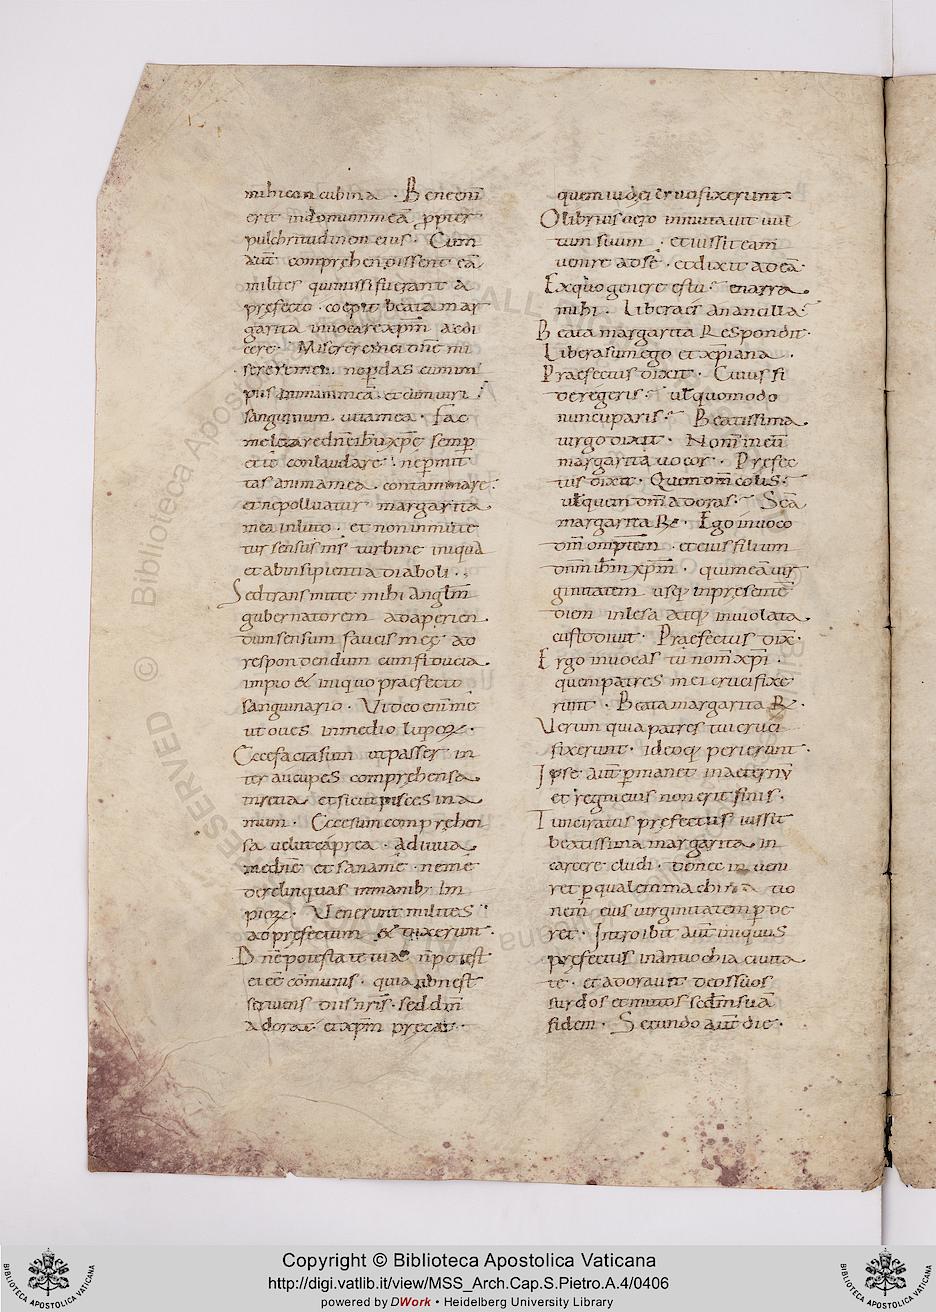 mihi concubina · Bene enī
erit in domum meā ꝓpter
pulchritudinem eius · Cum
aut̄ comprehendissent eā
milites qui missi fuerant a
prefecto · coepit beata mar
garita invocare xp̄m et di
cere · Miserere mei dn̄e mi
serere mei · ne perdas cum im
piis animam meā · et cum viri
sanguinum vitā mea · Fac
me letare dn̄e ihu xp̄e semp̄
et te conlaudare · ne p̄mit
tas anima mea · contaminare ·
et ne polluatur margarita
mea in luto · et non inmute
tur sensus m̄s turbine iniqua
et ab insipientia diaboli ·
Sed transmitte mihi angl̄m
gubernatorem ad aperien
dum sensum faucis meę ad
respondendum cum fiducia
impio & iniquo praefecto
sanguinario · Video enī me
ut oues in medio lupoꝝ ·
Ecce facta sum ut passer in
ter aucupes comprehensa
in retia et sicut pisces in a
mum · Ecce sum comprehen
sa velut caprea · Adiuva
me dn̄e et sana me · ne me
derelinquas in manib; im
pioꝝ · Venerunt milites
ad prefectum & dixerunt ·
Dn̄e potestate tuae n̄ potest
ei eē cōmunis · quia non est
seruiens diis nr̄is · sed dm̄
adorat et xp̄m precat ·
quem iudęi crucifixerunt ·
Olibrius uero inmutauit uul
tum suum · et iussit eam
uenire ad se · et dixit ad eā ·
Ex quo genere es tu · enarra
mihi · Libera es an ancilla ·
Beata margarita Respondit ·
Libera sum ego et xp̄iana ·
Praefectus dixit · Cuius fi
dei egeris · ul̄ quomodo
nuncuparis · Beatissima
uirgo dixit · Nom̄ meū
margarita uocor · Prefec
tus dixit · Quem dm̄ colis ·
ul̄ quem dm̄ adoras · Scā
margarita R̄ · Ego inuoco
dm̄ omp̄tem · et eius filium
dnm̄ ihm̄ xp̄m · qui meā uir
ginitatem usq; in presentē
diem inlesa atq; inuiolata
custodiuit · Praefectus dix̄ ·
Ergo inuocas tu nom̄ xp̄i ·
quem patres mei crucifixe
runt · Beata margarita R̄ ·
Verum quia patres tui cruci
fixerunt · ideoq; perierunt ·
Ipse aut̄ p̄manet in aeternū
et regni eius non erit finis ·
Tunc iratus prefectus iussit
beatissima margarita in
carcere cludi · donec inueni
ret p̄ qualem machina tio
nem eius uirginitatem p̄de
ret · Introibit aut̄ iniquus
prefectus in antiochia ciuita
te · et adorauit deos suos
surdos et mutos sed̄m suā
fidem · Secundo aut̄ die ·
Copyright © Biblioteca Apostolica Vaticana
http://digi.vatlib.it/view/MSS_Arch.Cap.S.Pietro.A.4/0406
powered by DWork • Heidelberg University Library
BIBLIOTECA APOSTOLICA VATICANA
BIBLIOTECA APOSTOLICA VATICANA